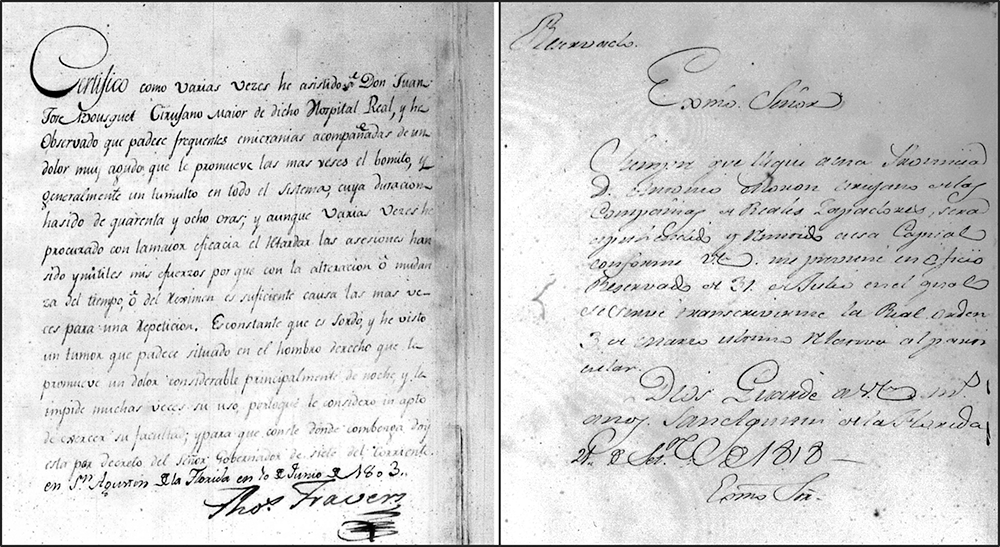 Certifico como varias verzes he asistido, â Don Juan
Jose Bousquet Cirujano Maior de dicho Hospital Real, y he
Observado que padece frequentes emicranias acompañadas de un
dolor muy agudo que le promueve las mas veses el bomito, y
generalmente un tumulto en todo el sistema, cuya duracion
hasido de quarenta y ocho oras; y aunque varias verzes he
procurado con lamaior eficacia el retardar las asesiones han
sido ynutiles mis efuerzos por que con la alteracion ô mudan
za del tiempo, ô del Reximen es suficiente causa las mas ve
ces para una Repeticion. Esconstante que es sordo, y he visto
un tumor que padece situado en el hombro derecho que le
promueve un dolor considerable principalmente de noche, y le
impide muchas veces su uso, porloqûe le considero in apto
de exercer su facultad; y para que conste donde combenga doy
esta por decreto del Señor Gobernador de siete del Corriente
en Sn. Agustin de la Florida en 10 de Junio de 1803.
Thos. Travers
Reservado.
Exmo. Señor
Siempre que llegue a esta Provincia
D. Antonio Moron cirujano de las
Compañias de Reales Zapadores, sera
y remitido a esa Capital
conforme V.E. me previene en oficio
Reservado de 31. de Julio en el qual
se sirve transcrivirme la Real orden
3 de Marzo ultimo relativa al parti
cular.
Dios Guarde a V.E. ms.
anos. San Agustin de la Florida
de 1818
Exmo Sor.